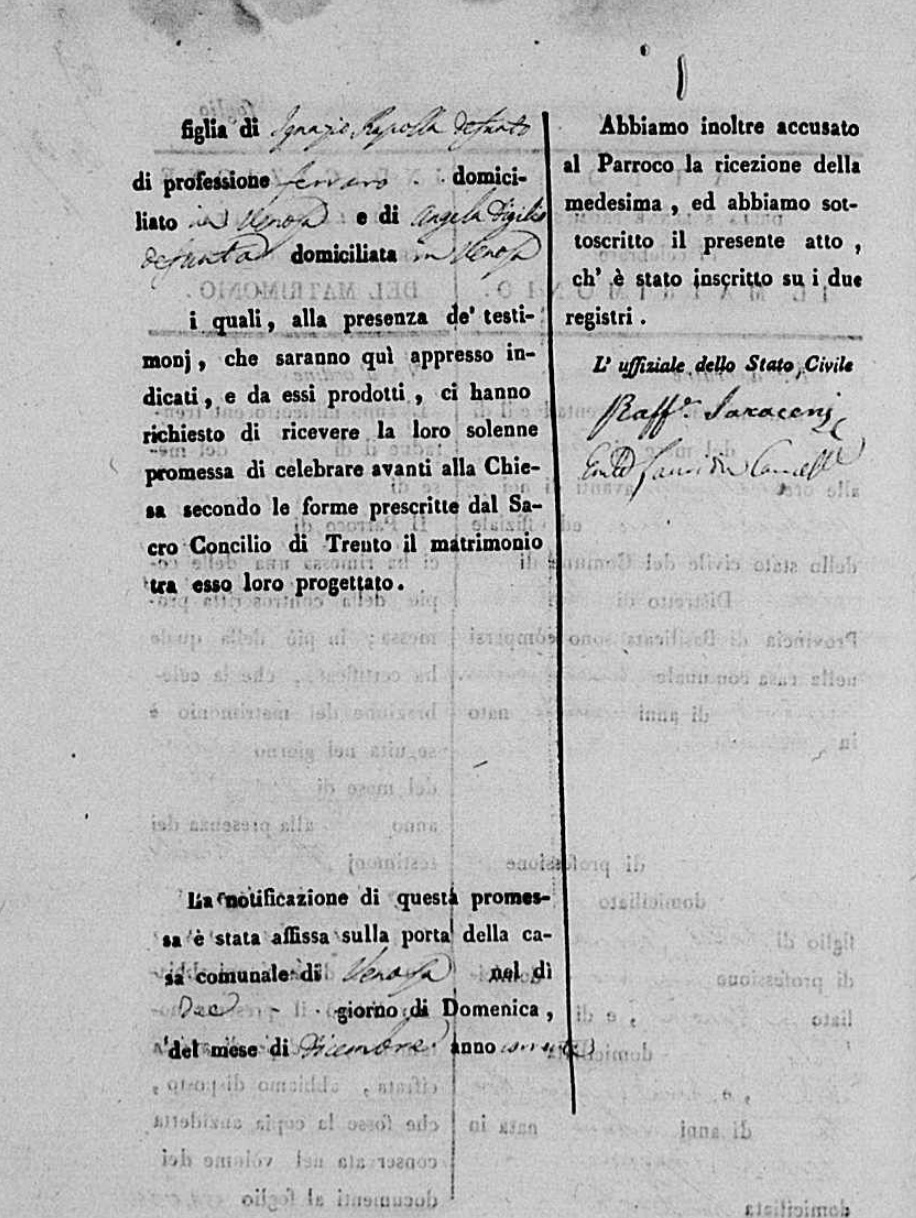 figlia di Ignazio Rapolla defunto
di professione ferraro domici-
liato in Venosa e di Angela Vigilio
defunta domiciliata in Venosa
i quali, alla presenza de' testi-
monj, che saranno quì appresso in-
dicati, e da essi prodotti, ci hanno
richiesto di ricevere la loro solenne
promessa di celebrare avanti alla Chie-
sa secondo le forme prescritte dal Sa-
cro Concilio di Trento il matrimonio
tra esso loro progettato.
La notificazione di questa promes-
sa è stata affissa sulla porta della ca-
sa comunale di Venosa nel dì
due giorno di Domenica,
del mese di Dicembre anno corrente
Abbiamo inoltre accusato
al Parroco la ricezione della
medesima, ed abbiamo sot-
toscritto il presente atto,
ch' è stato inscritto su i due
registri.
L' uffiziale dello Stato Civile
Raff.e Saraceni